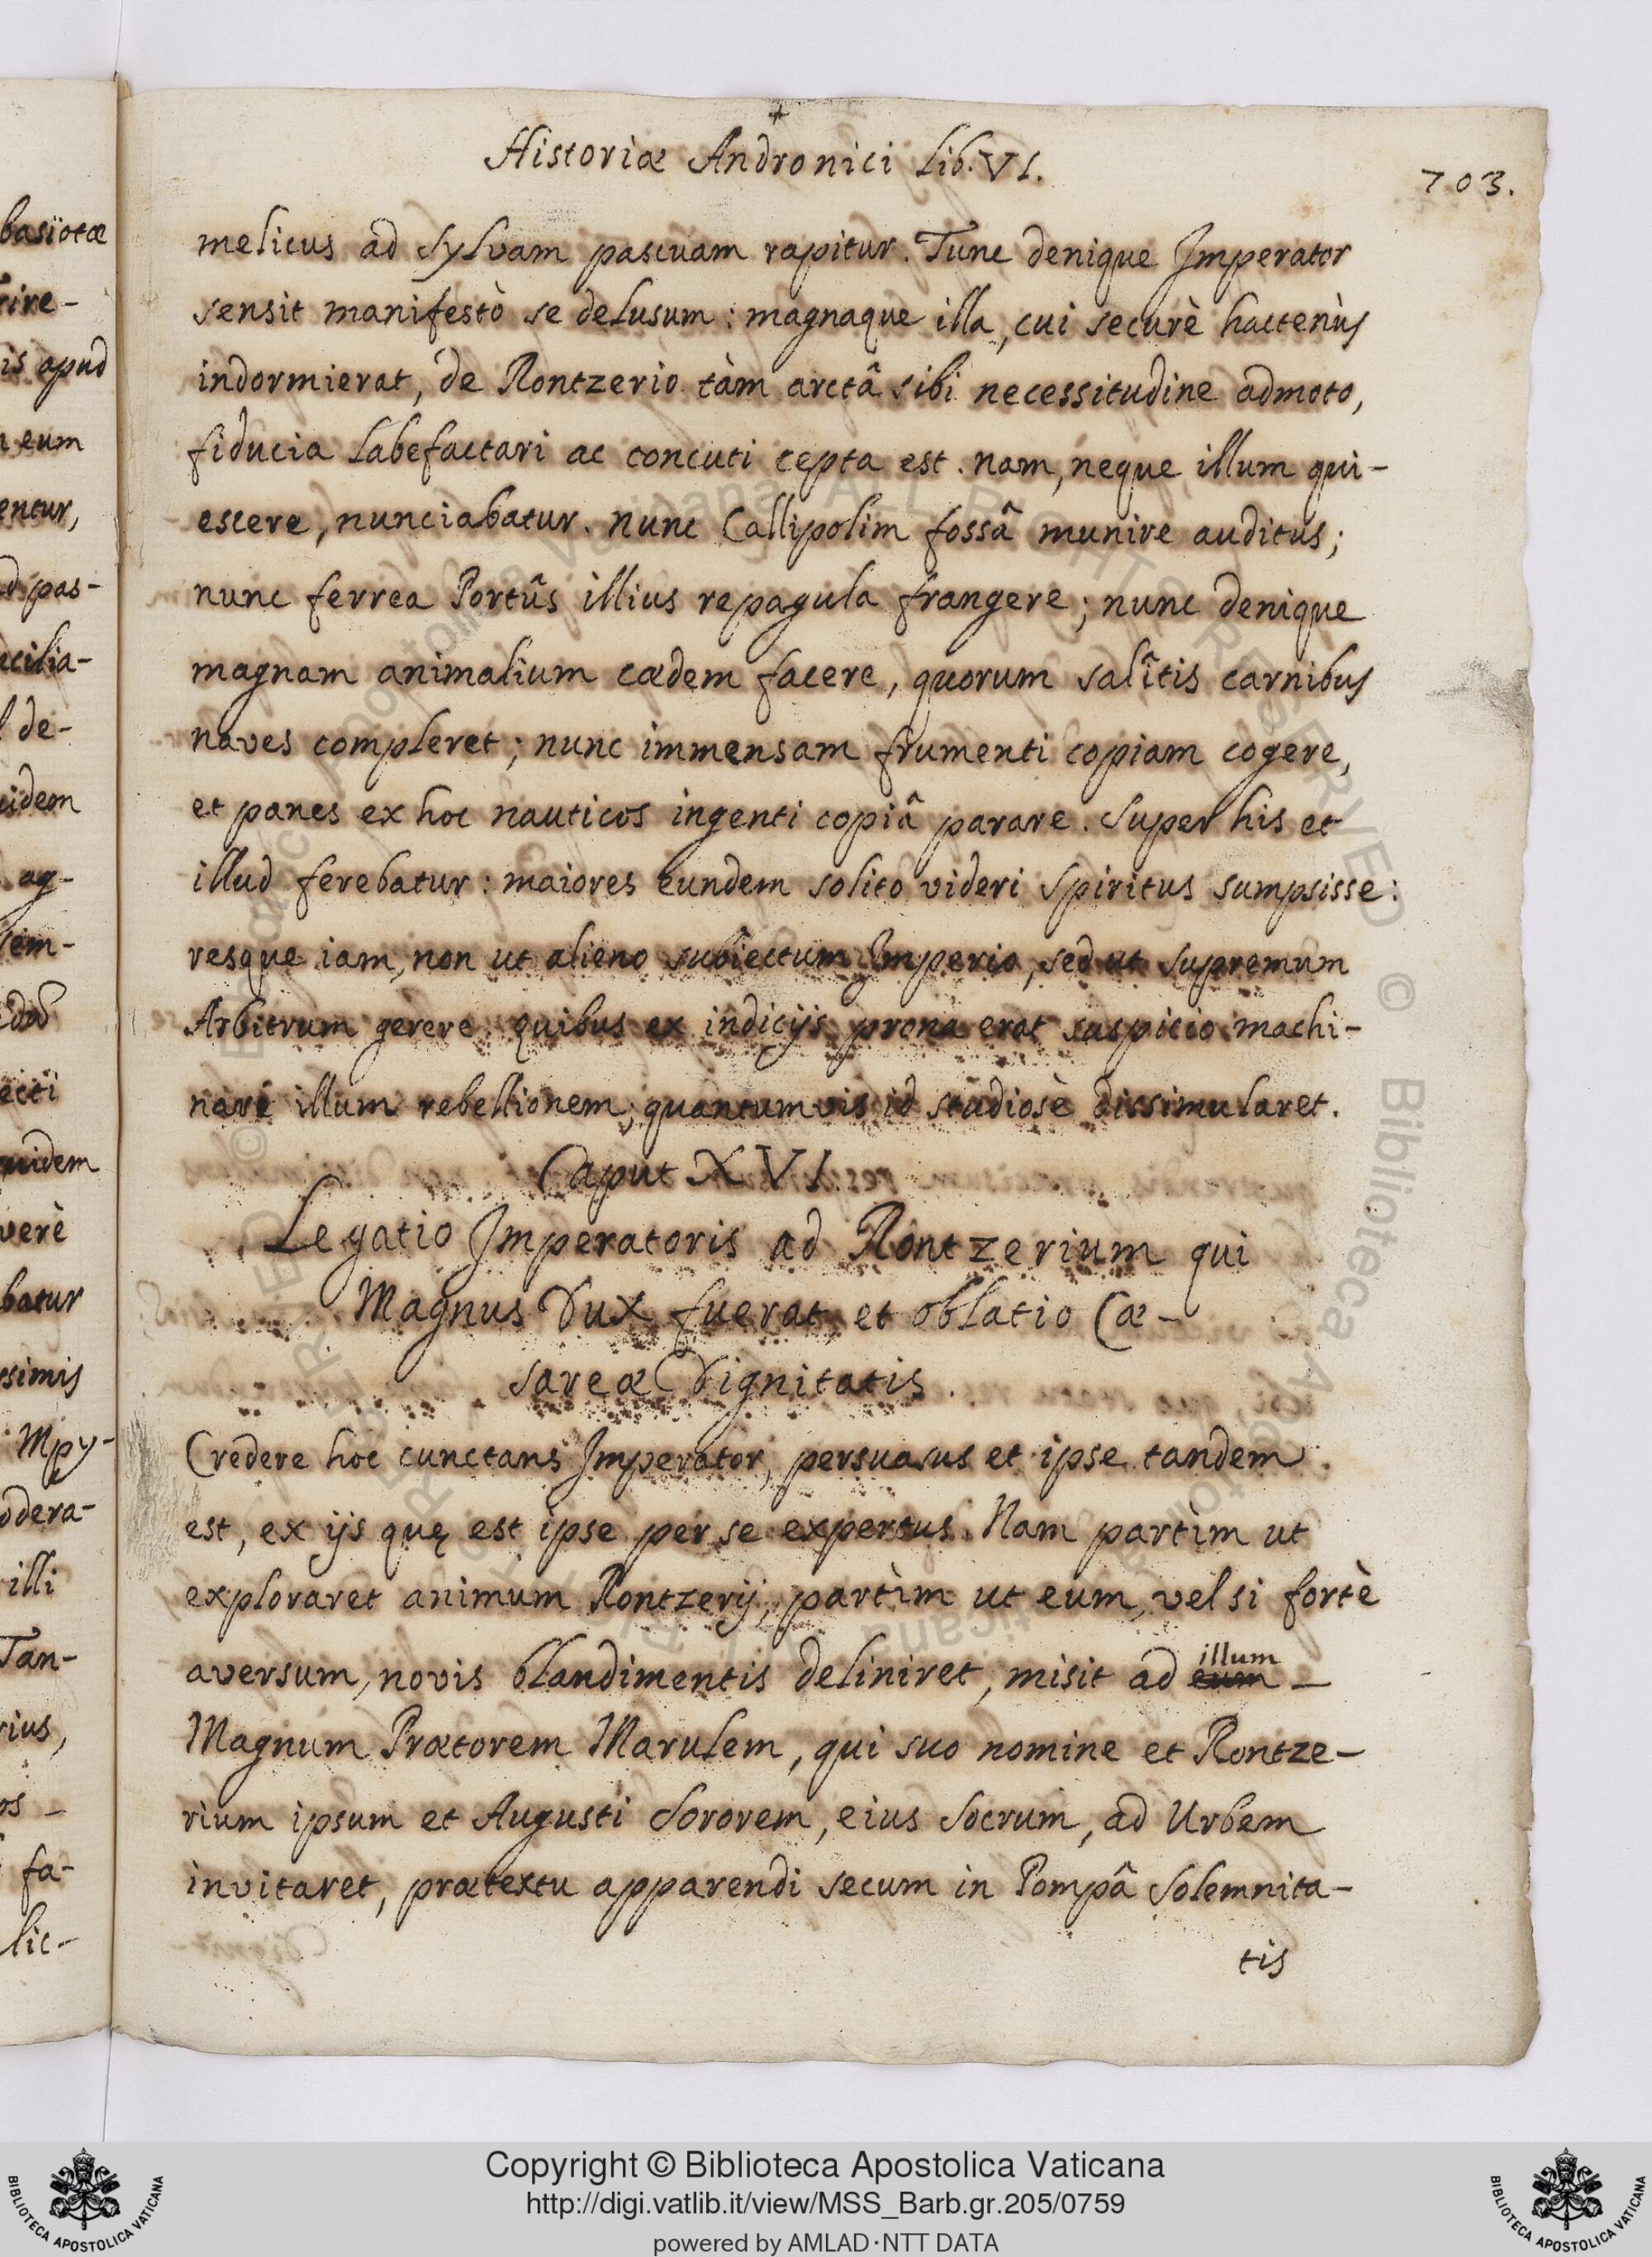 Historiæ Andronici Lib. VI.
703.
melicus ad Sylvam pascuam rapitur. Tunc denique Imperator
sensit manifestò se delusum: magnaque illa, cui securè hactenùs
indormierat, de Rontzerio tàm arctâ sibi necessitudine admoto,
fiducia labefactari ac concuti cepta est. nam, neque illum qui-
escere, nunciabatur. nunc Callipolim fossâ munire auditus;
nunc ferrea Portûs illius repagula frangere; nunc denique
magnam animalium cædem facere, quorum salîtis carnibus
naves compleret; nunc immensam frumenti copiam cogere,
et panes ex hoc nauticos ingenti copiâ parare. Super his et
illud ferebatur: maiores eundem solito videri Spiritus sumpsisse:
resque iam, non ut alieno subiectum Imperio, sed ut supremum
Arbitrum gerere. quibus ex indicijs prona erat suspicio machi-
nari illum rebellionem, quantumvis id studiosè dissimularet.
Caput XVI.
Legatio Imperatoris ad Rontzerium qui
Magnus Dux fuerat et oblatio Cæ-
sareæ Dignitatis.
Credere hoc cunctans Imperator, persuasus et ipse tandem
est, ex ijs quę est ipse per se expertus. Nam partìm ut
exploraret animum Rontzerij, partìm ut eum, vel si fortè
aversum, novis blandimentis deliniret, misit ad eum illum -
Magnum Prætorem Marulem, qui suo nomine et Rontze-
rium ipsum et Augusti Sororem, eius Socrum, ad Urbem
invitaret, prætextu apparendi secum in Pompâ Solemnita-
tis
basiotæ
rire-
is apud
eum
entur,
d pas-
cilia-
de-
idem
ag-
em-
ecti
uidem
verè
batur
ssimis
Mpy-
odera-
illi
Tan-
rius,
os -
fa-
lic-
Copyright © Biblioteca Apostolica Vaticana
http://digi.vatlib.it/view/MSS_Barb.gr.205/0759
powered by AMLAD·NTT DATA
BIBLIOTECA APOSTOLICA VATICANA
BIBLIOTECA APOSTOLICA VATICANA